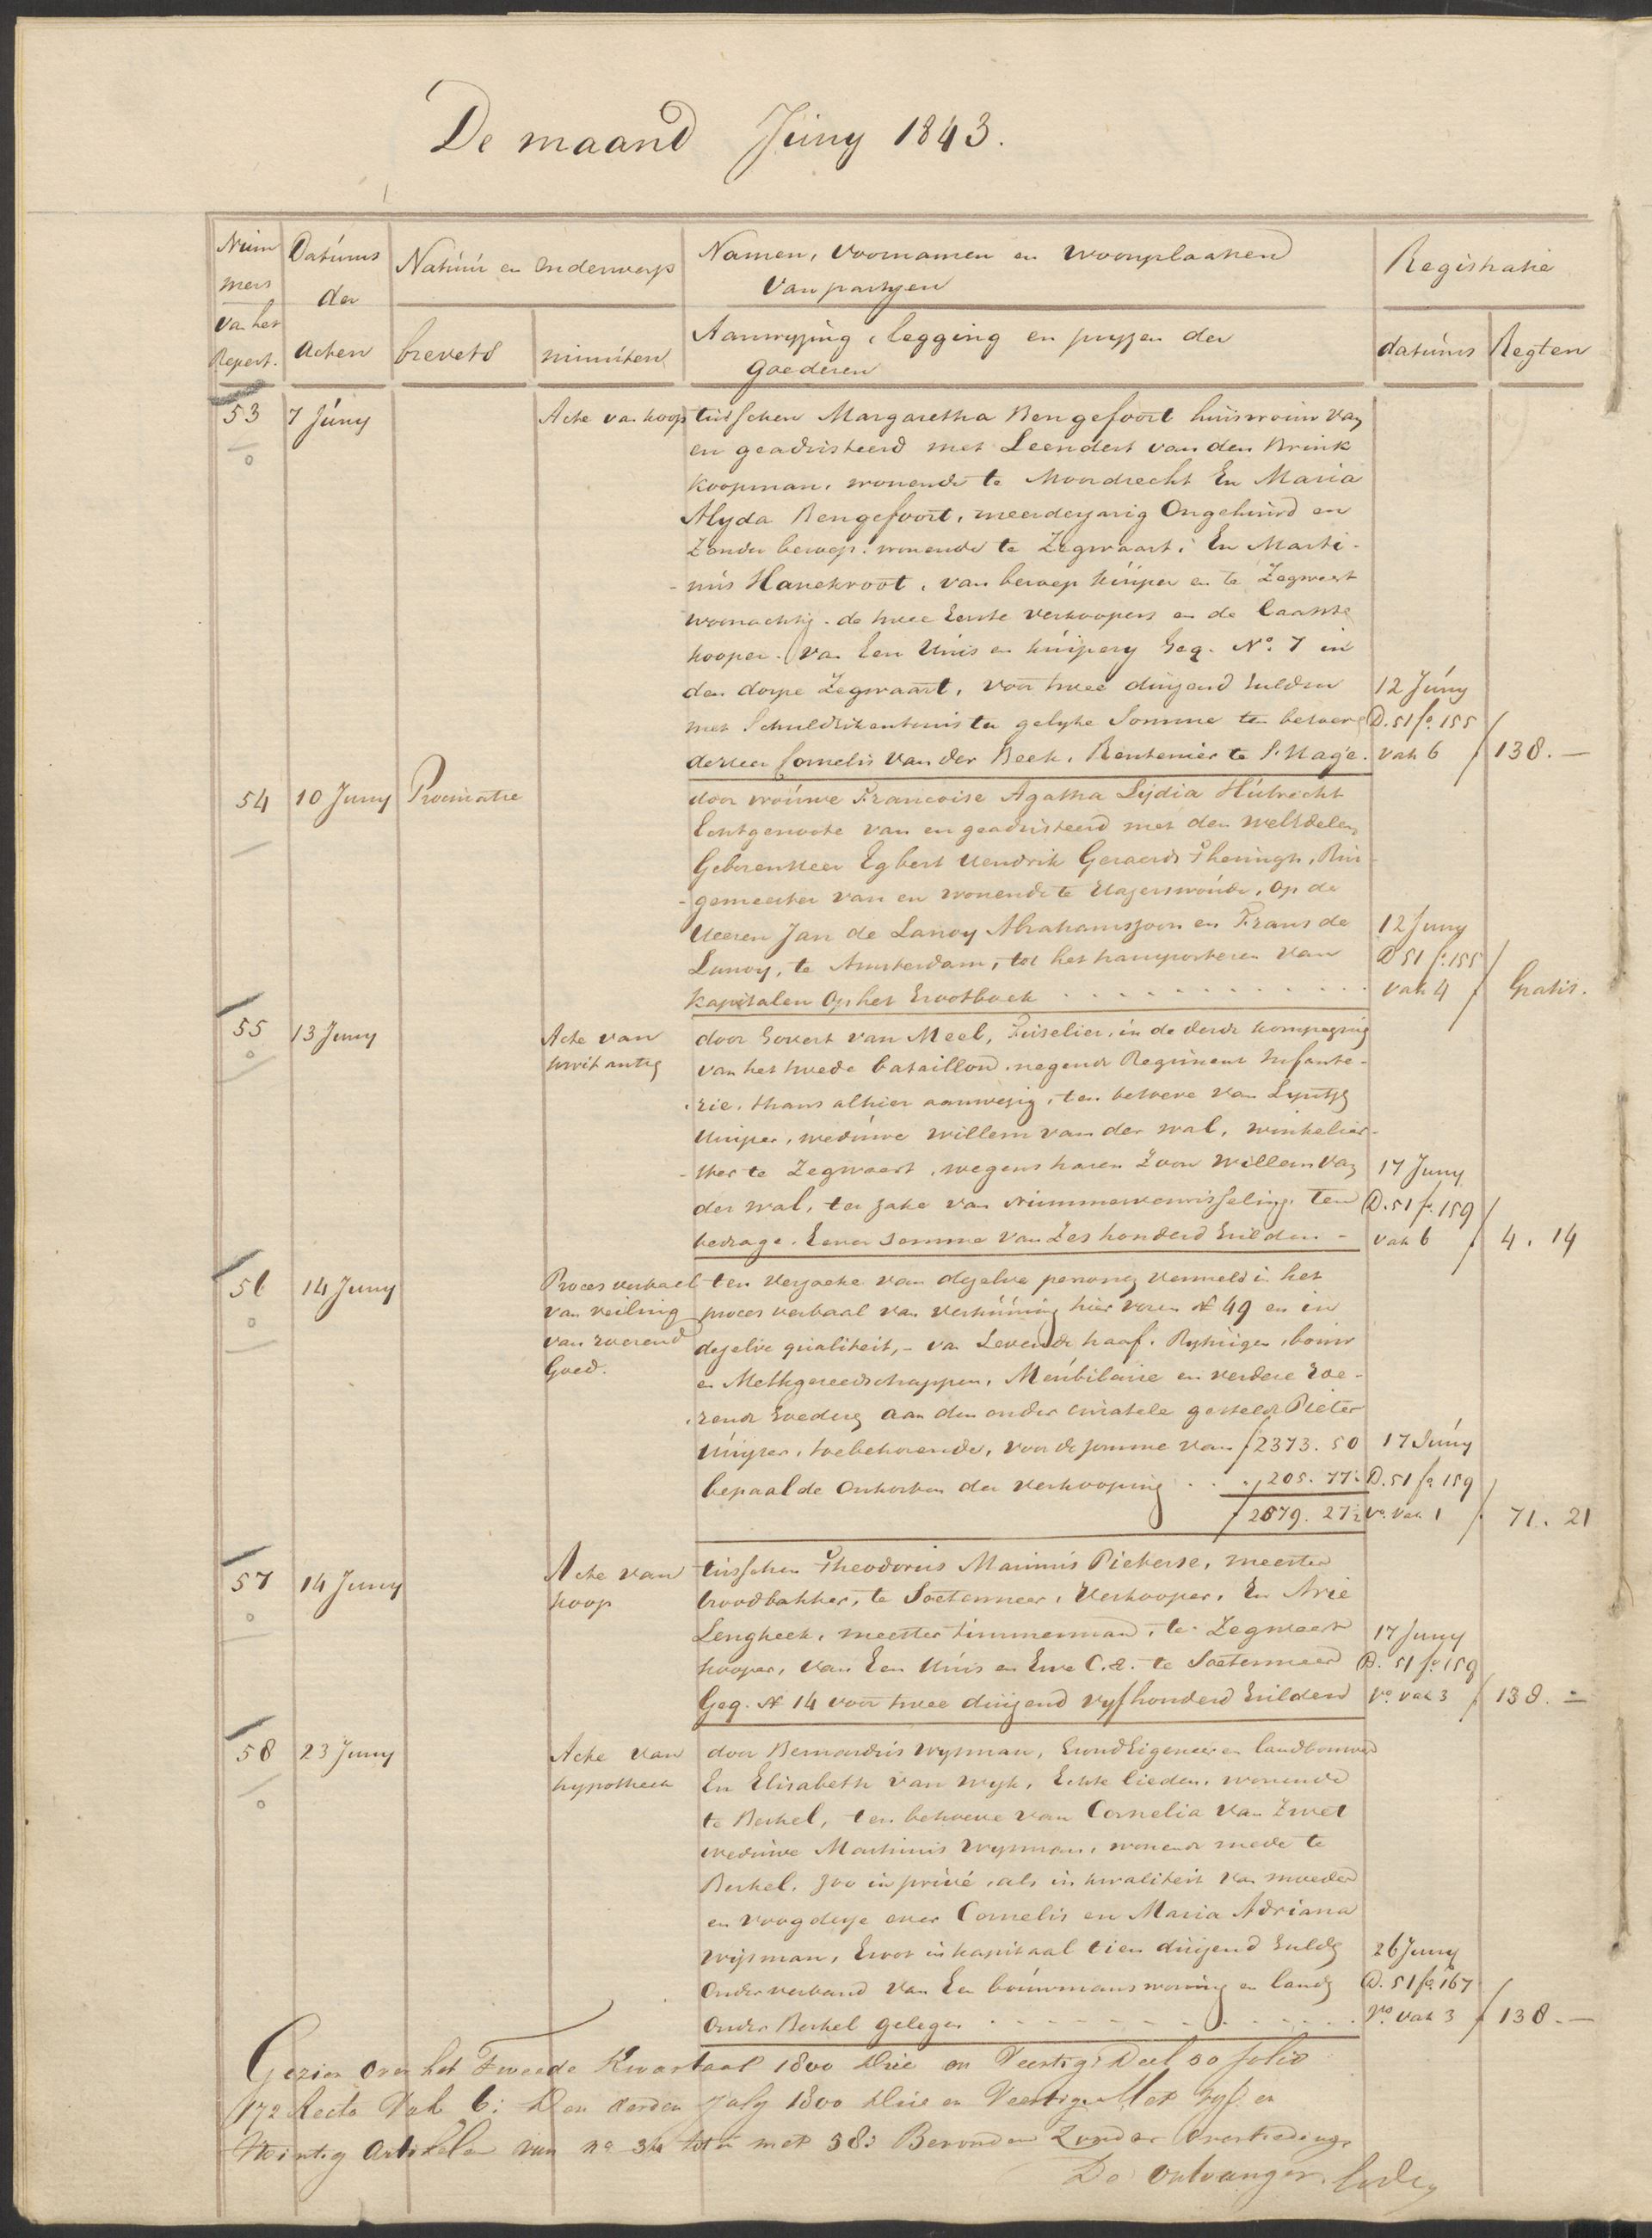 De maand Juny 1843.
Num
mers
van het
Repert.
Datums
der
Acten
Natuur en Onderwerp
brevets
minuten
Namen, Voornamen en Woonplaatsen
van partyen
Aanwyzing, legging en pryzen der
Goederen
Registratie
datums
Regten
53 7 Juny Acte van koop tusschen Margaretha Bengefoort huisvrouw van
en geadsisteerd met Leendert van den Brink
koopman, wonende te Moordrecht En Maria
Alyda Bengefoort, meerderjarig Ongehuwd en
Zonder beroep. wonende te Zegwaart. En Marti-
-nus Hanekroot, van beroep kuiper en te Zegwaart
woonachtig. de twee Eerste verkoopers en de laatste
kooper. van Een Huis en kuipery Geq. No. 7 in
den dorpe Zegwaart, voor twee duizend Gulden 12 Juny
met Schuldbekentenis ter gelyke Somme ten behoeve D. 51 fo. 155
derheer Cornelis van der Beek, Rentenier te S'Hage. vak 6 f 138. —
54 10 Juny Procuratie door vrouwe Francoise Agatha Lydia Hubrecht
Echtgenoote van en geadsisteerd met den WelEdelen
Geboren Heer Egbert Hendrik Geraerds Theringh, Bur-
-gemeester van en wonende te Hazerswoude, op de
Heeren Jan de Lanoy Abrahamszoon en Frans de 12 Juny
Lanoy, te Amsterdam, tot het transporteren van D 51 f. 155
kapitalen Op het Grootboek vak 4 f Gratis.
55 13 Juny Acte van door Govert van Meel, Fuselier, in de derde kompagnie
kwitantie van het twede bataillon negende Regiment Infante-
-rie, thans alhier aanwezig, ten behoeve van Lyntje
Kuiper, weduwe Willem van der Wal, winkelier-
-ster te Zegwaart, wegens haren Zoon Willem van 17 Juny
der Wal, ter zake van Nummerverwisseling. ten D. 51 f. 159
bedrage. Eener somme van Zes honderd Gulden - vak 6 f 4. 14
56 14 Juny Proces verbaal ten verzoeke van dezelve personen vermeld in het
van veiling proces verbaal van verhuuring hier voren No 49 en in
van roerend dezelve qualiteit, - van Levende haaf. Rytuigen, bouw
Goed. en Melkgereedschappen, Meubilaire en verdere roe-
-rende Goederen aan den onder curatele gestelde Pieter
Kuyper, toebehorende, voor de somme van f 2373. 50 17 Juny
bepaalde Onkosten der verkooping 205. 77½ D. 51 fo 159
f 2579. 27½ vo. vak 1 f 71. 21
57 14 Juny Acte van tusschen Theodorus Marinus Pieterse, meester
koop broodbakker, te Soetermeer, Verkooper, En Arie
Lengkeek, meester timmerman, te Zegwaart 17 Juny
kooper, van Een Huis en Erve C.A. te Soetermeer D. 51 fo 159
Geq. No 14 voor twee duizend vyfhonderd Gulden vo. vak 3 f 138. —
58 23 Juny Acte van door Bernardus Wysman, GrondEigenaer en landbouwer
hypotheek En Elisabeth van Wyk, Echte lieden, wonende
te Berkel, ten behoeve van Cornelia van Zwet
weduwe Martinus Wysman, wonende mede te
Berkel, zoo in privé, als in kwaliteit van moeder
en voogdesse over Cornelis en Maria Adriana
Wijsman, Groot in kapitaal tien duizend Gulden 26 Juny
Onder verband van Een bouwmanswoning en landen D. 51 fo 167
Onder Berkel gelegen vo. vak 3 f 138. —
Gezien over het Tweede Kwartaal 1800 drie en Veertig. Deel 50 folio
172 Recto Vak 6: Den derden July 1800 drie en Veertig. Met vyf en
twintig Artikelen van no 34 tot en met 58: Bevonden Zonder Overtreding.
De Ontvanger.